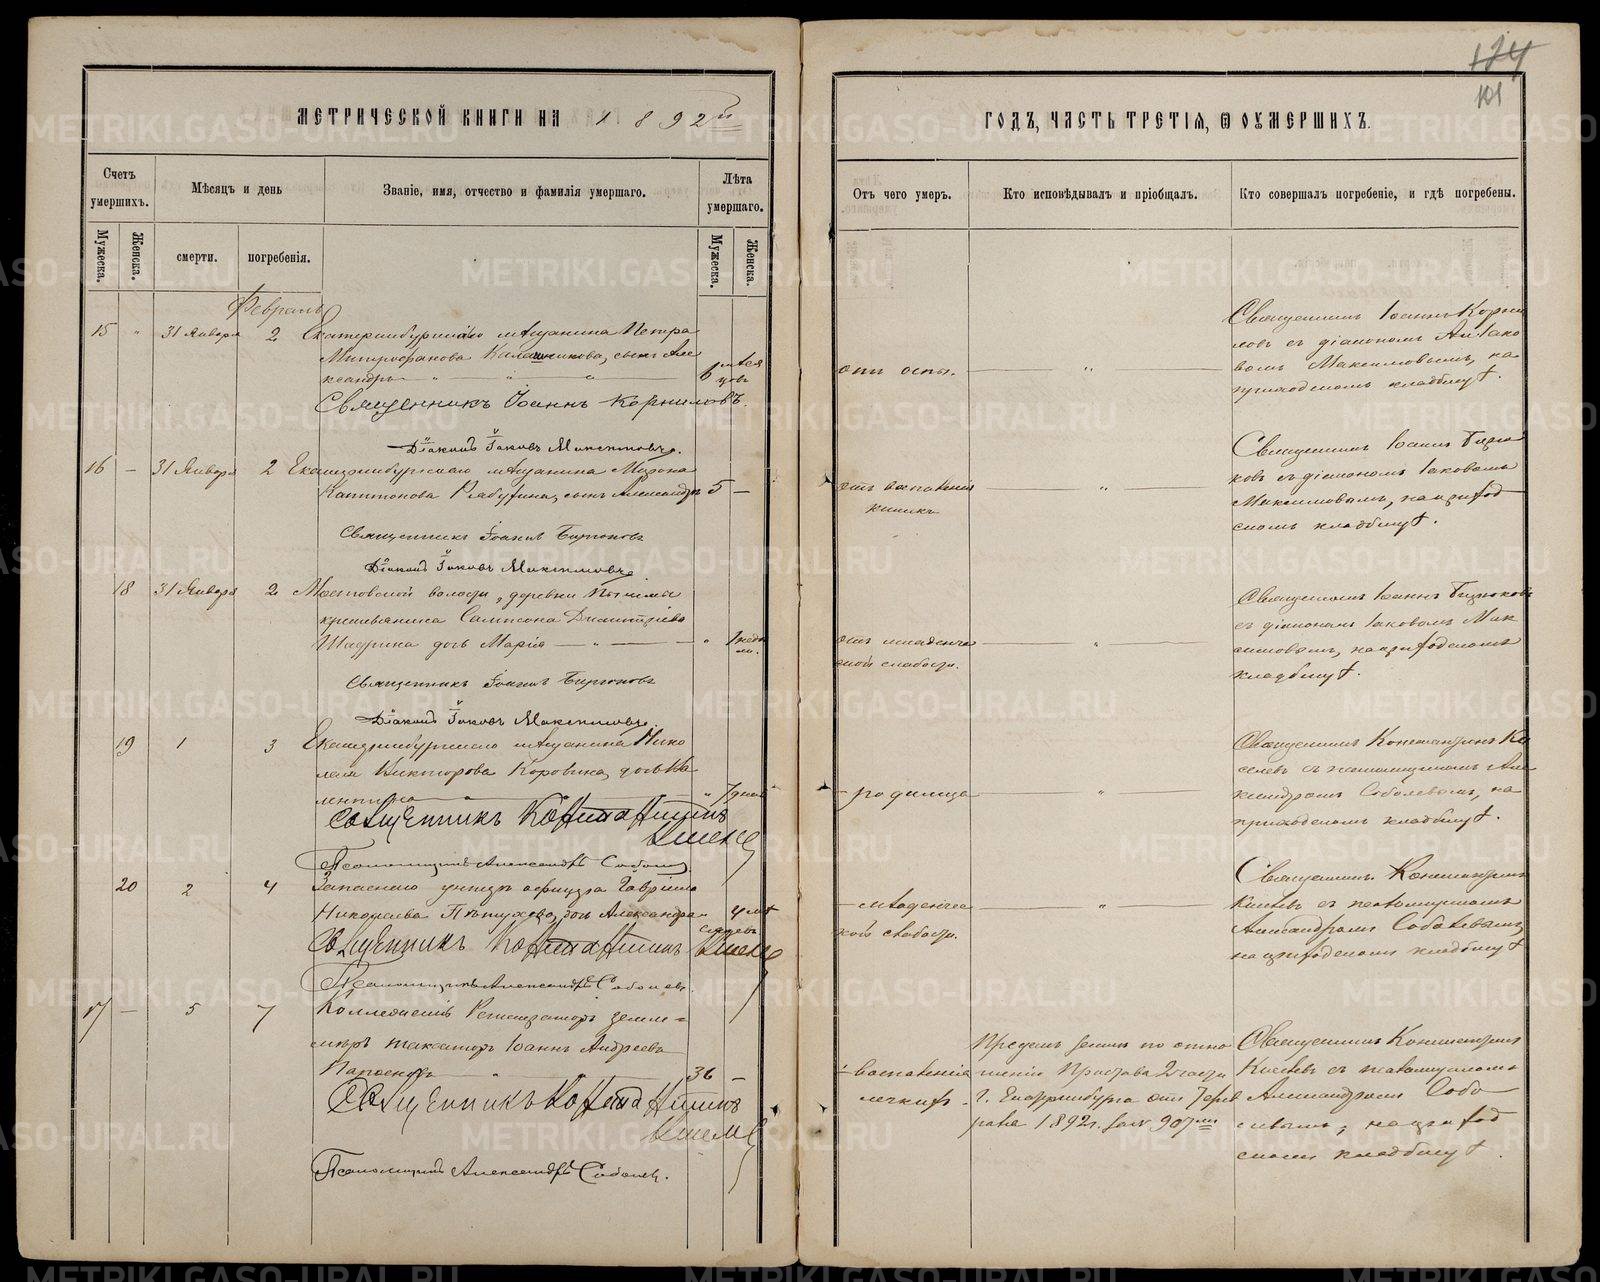 МЕТРИЧЕСКОЙ КНИГИ НА 1892й
Счетъ умершихъ.
Мѣсяцъ и день
Званіе, имя, отчество и фамилія умершаго.
Лѣта умершаго.
Мужеска.
Женска.
смерти.
погребенія.
Мужеска.
Женска.
Февраль
15 " 31 Января 2 Екатеринбургскаго мѣщанина Петра
Митрофанова Калашникова, сынъ Але
ксандръ 6 мѣсяцовъ
Священникъ Іоаннъ Корниловъ.
Діаконъ Іаковъ Максимовъ.
16 — 31 Января 2 Екатеринбургскаго мѣщанина
Капитонова сынъ Александръ 5 —
Священникъ Іоаннъ Бирюковъ
Діаконъ Іаковъ Максимовъ
18 31 Января 2 Мостовской волости, деревни
крестьянина Сампсона Димитріева
дочь Марія " 1 недѣли.
Священникъ Іоаннъ Бирюковъ
Діаконъ Іаковъ Максимовъ.
19 1 3 Екатеринбургскаго мѣщанина Нико
лая Викторова Коровина, дочь Ва
лентина " 7 дней
Священникъ Константинъ
Псаломщикъ Александръ Соболевъ
20 2 4 Запаснаго унтеръ офицера Гавріила
Николаева Пѣтухова, дочь Александра " 4 мѣсяцевъ
Священникъ Константинъ
Псаломщикъ Александръ Соболевъ.
17 — 5 7 Коллежскій Регистраторъ земле=
мѣръ таксаторъ Іоаннъ Андреевъ
36 —
Священникъ Константинъ
Псаломщикъ Александръ Соболевъ.
174
101
ГОДЪ, ЧАСТЬ ТРЕТІЯ, Ѿ ОУМЕРШИХЪ.
Отъ чего умеръ.
Кто исповѣдывалъ и пріобщалъ.
Кто совершалъ погребеніе, и гдѣ погребены.
отъ оспы.
Священникъ Іоаннъ Корни
ловъ съ діакономъ Іако
вомъ Максимовымъ, на
приходскомъ кладбищѣ.
отъ воспаленія
кишекъ
Священникъ Іоаннъ Бирю
ковъ съ діакономъ Іаковомъ
Максимовымъ, на приход
скомъ кладбищѣ.
отъ младенче
ской слабости.
Священникъ Іоаннъ Бирюковъ
съ діакономъ Іаковомъ Мак
симовымъ, на приходскомъ
кладбищѣ.
родимца
Священникъ Константинъ Ки
селевъ съ псаломщикомъ Але
ксандромъ Соболевымъ, на
приходскомъ кладбищѣ.
младенчес
кой слабости.
Священникъ Константинъ
съ псаломщикомъ
Александромъ Соболевымъ,
на приходскомъ кладбищѣ
воспаленія
легкихъ
Преданъ землѣ по отно
шенію Пристава 2 части
г. Екатеринбурга отъ 7 фев
раля 1892 г. за № 907
Священникъ Константинъ
съ псаломщикомъ
Александромъ Собо
левымъ, на приход
скомъ кладбищѣ.
METRIKI.GASO-URAL.RU